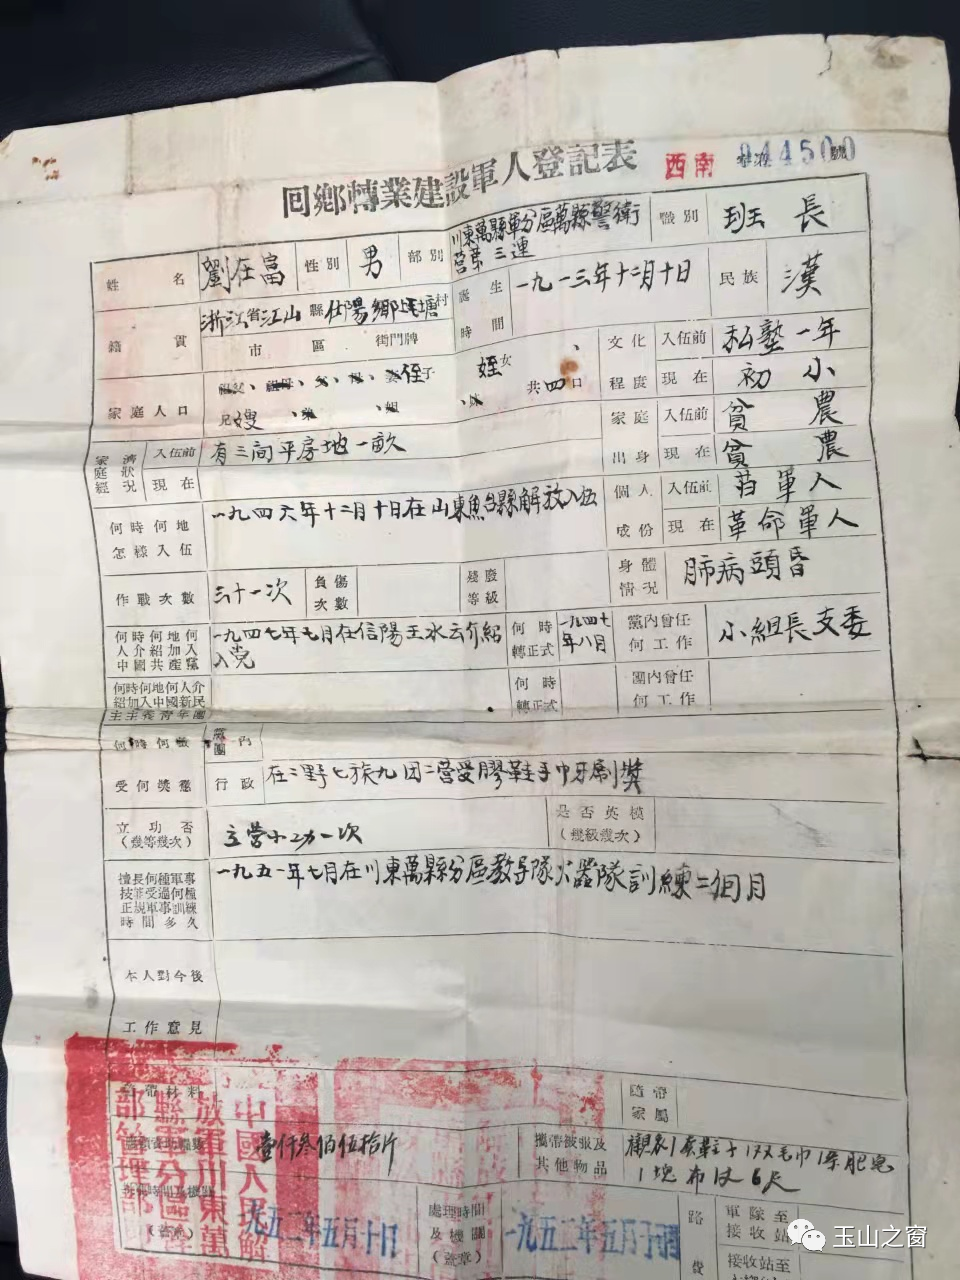 回鄉轉業建設軍人登記表
西南 044500 號
姓名 劉在富 性別 男 部別 川東萬縣軍分區萬縣警衛營第三連 職別 班長
籍貫 浙江省江山縣仕陽鄉塘村
市 區 街門牌
誕生時間 一九一三年十二月十日 民族 漢
家庭人口 侄子 姪女 共四口
兄嫂
文化程度 入伍前 私塾一年
現在 初小
家庭經濟狀況 入伍前 有三间平房地一畝
現在
家庭出身 入伍前 貧農
現在 貧農
何時何地怎樣入伍 一九四六年十二月十日在山東魚台縣解放入伍
個人成份 入伍前 軍人
現在 革命軍人
作戰次數 三十一次 負傷次數 殘廢等級 身體情況 肺病頭昏
何時何地何人介紹加入中國共產黨 一九四七年七月在信陽王水云介紹入党
何時轉正式 一九四七年八月 黨內曾任何工作 小組長支委
何時何地何人介紹加入中國新民主主義青年團 何時轉正式 團內曾任何工作
何時何地受何獎懲 黨團內
行政 在二野七旅九团二營受膠鞋手巾牙刷獎
立功否(幾等幾次) 立营小功一次 是否英模(幾級幾次)
擅長何種軍事技術受過何種正規軍事訓練時間多久 一九五一年七月在川東萬縣分區教导隊火器隊訓練二個月
本人對今後工作意見
攜帶材料 隨帶家屬
壹仟叁佰伍拾斤 攜帶被服及其他物品 襯衣1 鞋子1双毛巾1条肥皂1塊布6尺
(蓋章) 一九五二年五月十日 處理時間及機關(蓋章) 一九五二年五月十日 路費 軍隊至接收站
接收站至
中國人民解放軍川東萬縣軍分區
玉山之窗